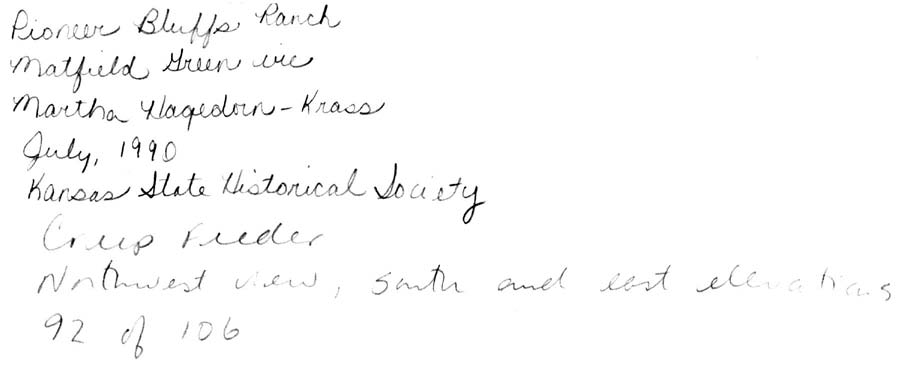 Pioneer Bluffs Ranch
Matfield Green vic
Martha Hagedorn-Krass
July, 1990
Kansas State Historical Society
Creep Feeder
Northwest view, south and east elevations
92 of 106